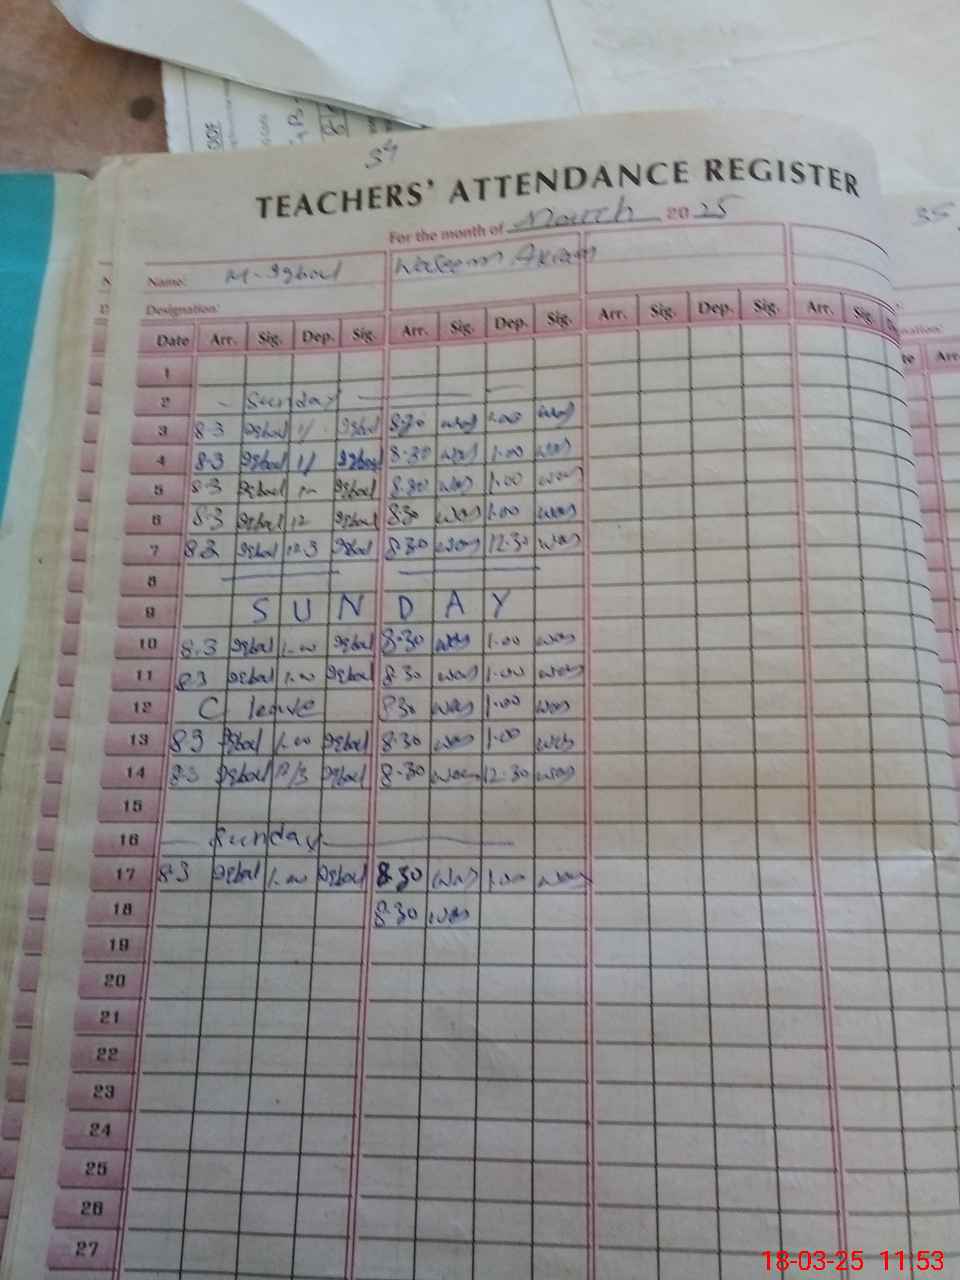 34
TEACHERS' ATTENDANCE REGISTER
For the month of March 2025
35
Name: M. Iqbal Waseem Akram
Designation:
Date Arr. Sig. Dep. Sig. Arr. Sig. Dep. Sig. Arr. Sig. Dep. Sig. Arr. Sig.
1
2 Sunday
3 8.3 Iqbal 11 Iqbal 8.30 was 1.00 was
4 8.3 Iqbal 11 Iqbal 8.30 was 1.00 was
5 8.3 Iqbal Iqbal 8.30 was 1.00 was
6 8.3 Iqbal 12 Iqbal 830 was 1.00 was
7 8.3 Iqbal 12.3 Iqbal 8.30 was 12.30 was
8
9 SUNDAY
10 8.3 Iqbal 1.00 Iqbal 8.30 was 1.00 was
11 83 Iqbal 1.00 Iqbal 8.30 was 1.00 was
12 C leave 830 was 1.00 was
13 83 Iqbal 1.00 Iqbal 8.30 was 1.00 was
14 8.3 Iqbal 12/3 Iqbal 8.30 was 12.30 was
15
16 Sunday
17 83 Iqbal 1.00 Iqbal 8.30 was 1.00 was
18 8.30 was
19
20
21
22
23
24
25
26
27
18-03-25 11:53